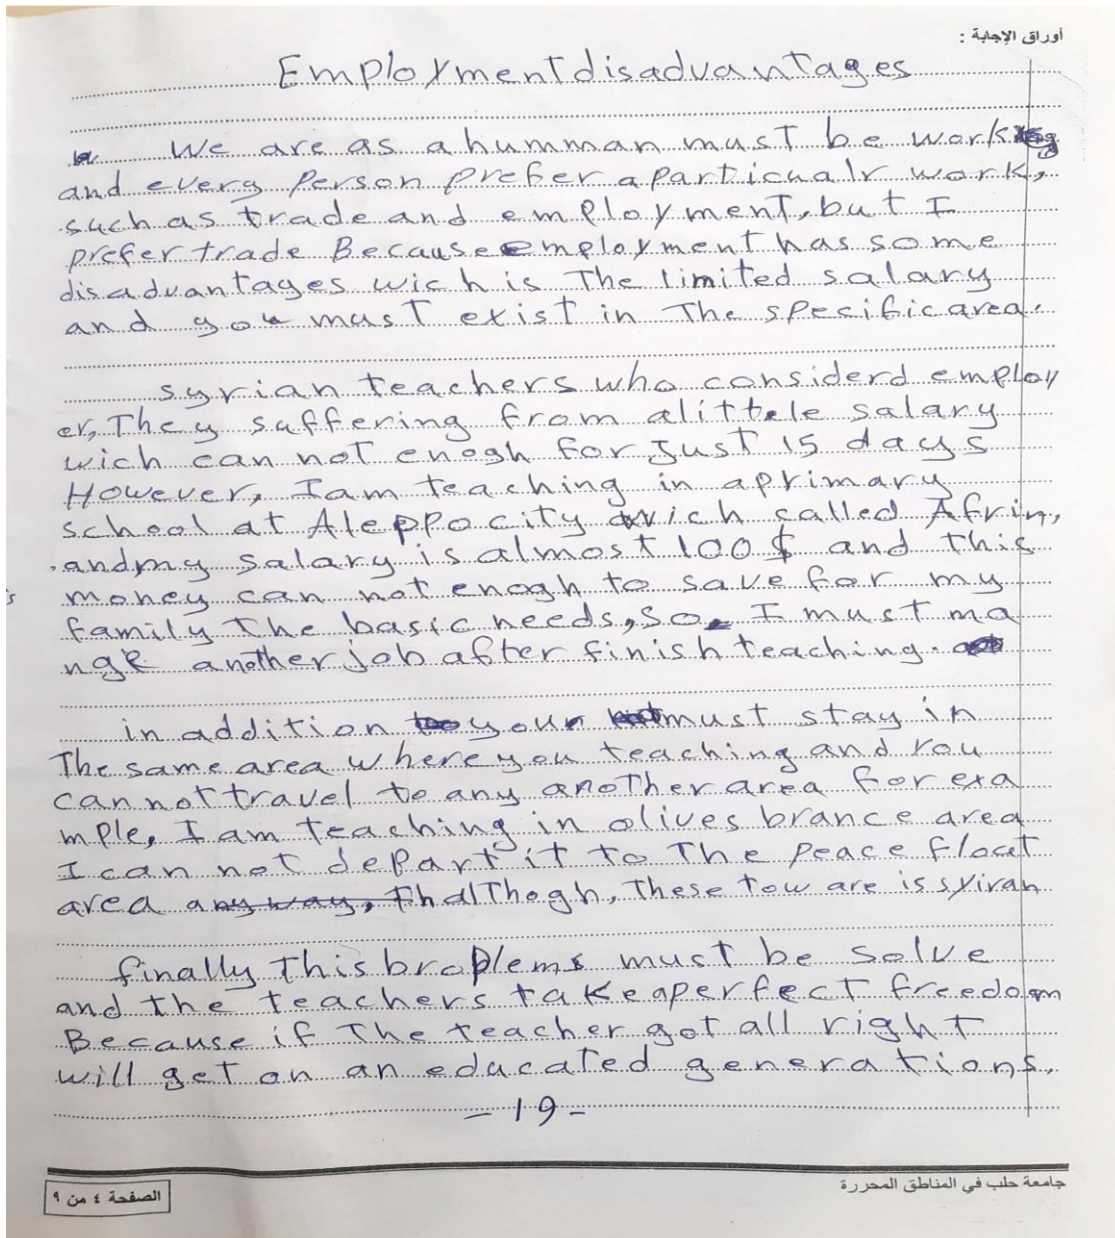 أوراق الإجابة :
Employment disadvantages
We are as a humman must be work
and every person prefer a particualr work,
such as trade and employment, but I
prefer trade Because employment has some
disadvantages wich is The limited salary
and you must exist in The specific area.
syrian teachers who considerd employ
er, They suffering from alittele salary
wich can not enogh for Just 15 days
However, I am teaching in aprimary
school at Aleppo city wich called Afrin,
and my salary is almost 100 $ and this
money can not enogh to save for my
family The basic needs, so I must ma
nge another job after finish teaching.
in addition your must stay in
The same area where you teaching and You
can not travel to any another area for exa
mple, I am teaching in olives brance area
I can not depart it to The peace
area any way, Thogh, These tow are is syiran
finally This broplems must be solve
and the teachers take aperfect freedom
Because if The teacher got all right
will get on an educated generations.
- 19 -
جامعة حلب في المناطق المحررة
الصفحة ٤ من ٩